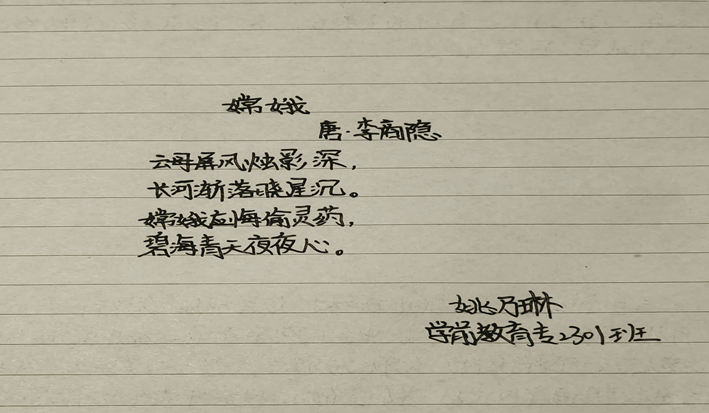 嫦娥
唐·李商隐
云母屏风烛影深，
长河渐落晓星沉。
嫦娥应悔偷灵药，
碧海青天夜夜心。
姚乃琳
学前教育专2301班